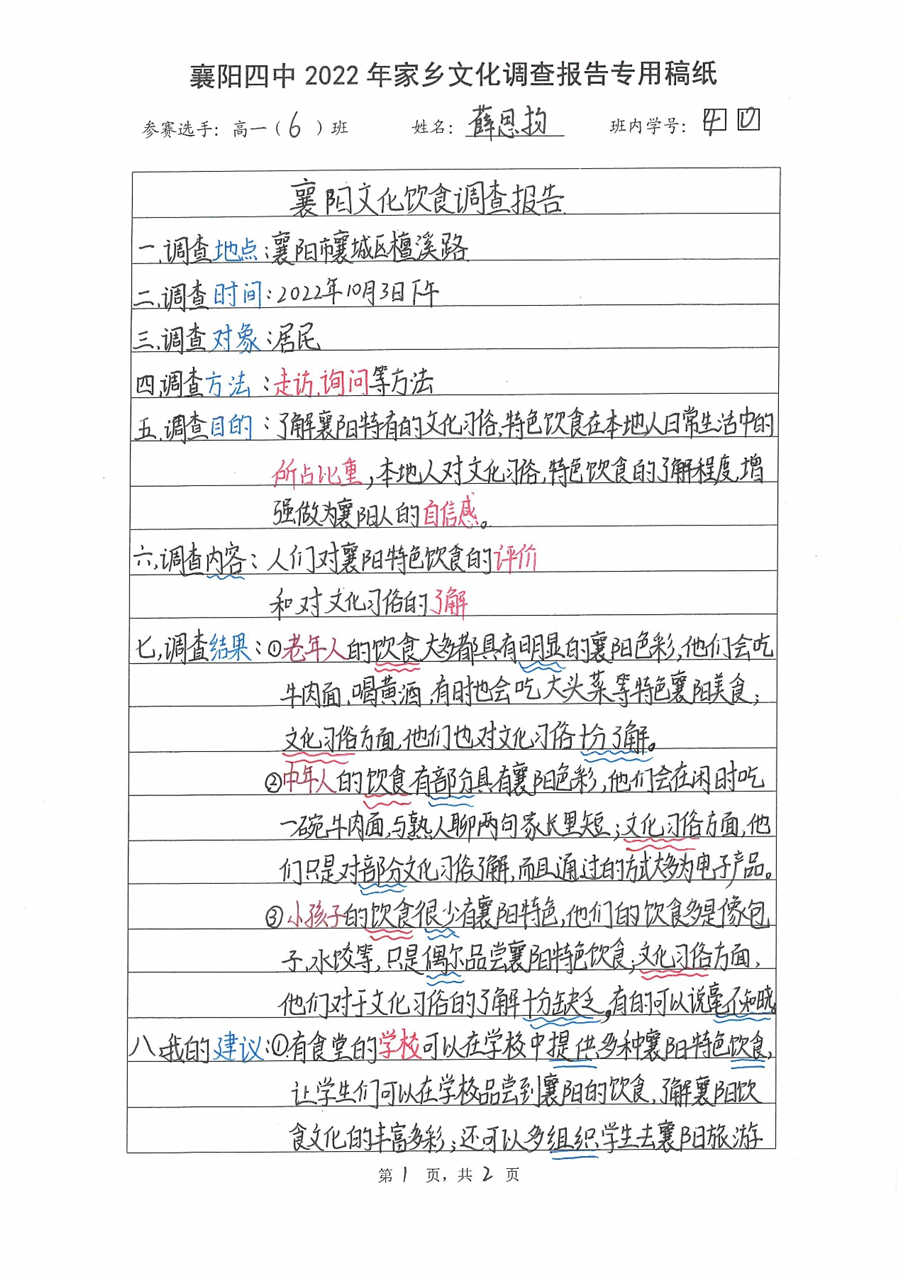 襄阳四中 2022 年家乡文化调查报告专用稿纸
参赛选手：高一（6）班 姓名：薛恩均 班内学号：40
襄阳文化饮食调查报告
一.调查地点：襄阳市襄城区檀溪路
二.调查时间：2022年10月3日下午
三.调查对象：居民
四.调查方法：走访、询问等方法
五.调查目的：了解襄阳特有的文化习俗，特色饮食在本地人日常生活中的
所占比重，本地人对文化习俗，特色饮食的了解程度，增
强做为襄阳人的自信感。
六.调查内容：人们对襄阳特色饮食的评价
和对文化习俗的了解
七.调查结果：①老年人的饮食大多都具有明显的襄阳色彩，他们会吃
牛肉面，喝黄酒，有时也会吃大头菜等特色襄阳美食；
文化习俗方面，他们也对文化习俗十分了解。
②中年人的饮食有部分具有襄阳色彩，他们会在闲时吃
一碗牛肉面，与熟人聊两句家长里短；文化习俗方面，他
们只是对部分文化习俗了解，而且通过的方式大多为电子产品。
③小孩子的饮食很少有襄阳特色，他们的饮食多是像包
子，水饺等，只是偶尔品尝襄阳特色饮食；文化习俗方面，
他们对于文化习俗的了解十分缺乏，有的可以说毫不知晓。
八.我的建议：①.有食堂的学校可以在学校中提供多种襄阳特色饮食，
让学生们可以在学校品尝到襄阳的饮食，了解襄阳饮
食文化的丰富多彩；还可以多组织学生去襄阳旅游
第 1 页，共 2 页